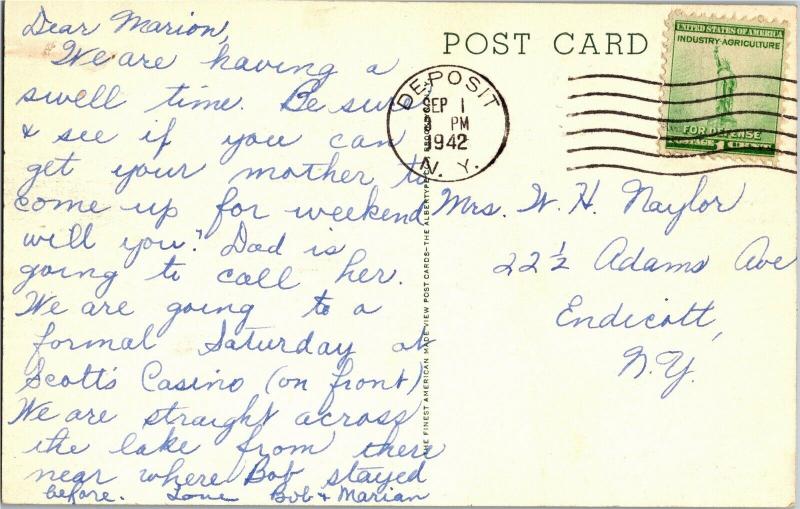 Dear Marion,
We are having a
swell time. Be sure
& see if you can
get your mother to
come up for weekend
will you? Dad is
going to call her.
We are going to a
formal Saturday at
Scott's Casino (on front)
We are straight across
the lake from there
near where Bob stayed
before. Love Bob & Marian
POST CARD
DEPOSIT
SEP 1
PM
1942
N. Y.
UNITED STATES OF AMERICA
INDUSTRY-AGRICULTURE
FOR DEFENSE
POSTAGE 1 CENT
Mrs. W. H. Naylor
22½ Adams Ave
Endicott,
N.Y.
THE FINEST AMERICAN MADE VIEW POST CARDS—THE ALBERTYPE